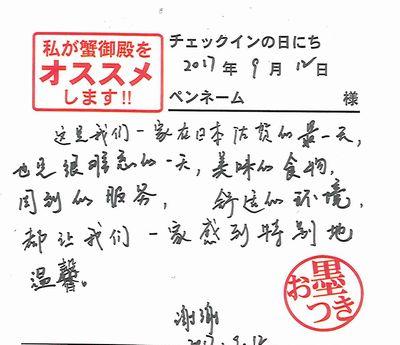 私が蟹御殿を
オススメ
します!!
チェックインの日にち
2017年9月12日
ペンネーム 様
这是我们一家在日本佐贺的最一天,
也是很难忘的一天,美味的食物,
周到的服务, 舒适的环境,
都让我们一家感到特别地
温馨。
お墨つき
谢谢
2017.9.12